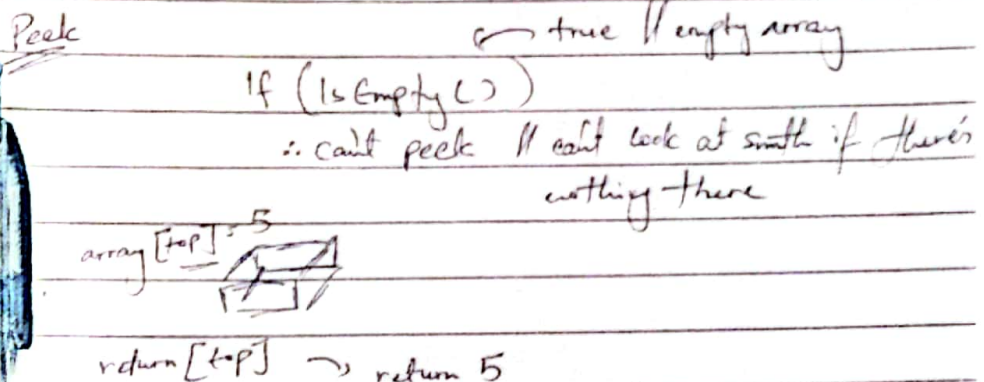 Peek
true // empty array
If (IsEmpty())
∴ can't peek // can't look at smth if there's
nothing there
array [top] = 5
return [top] → return 5